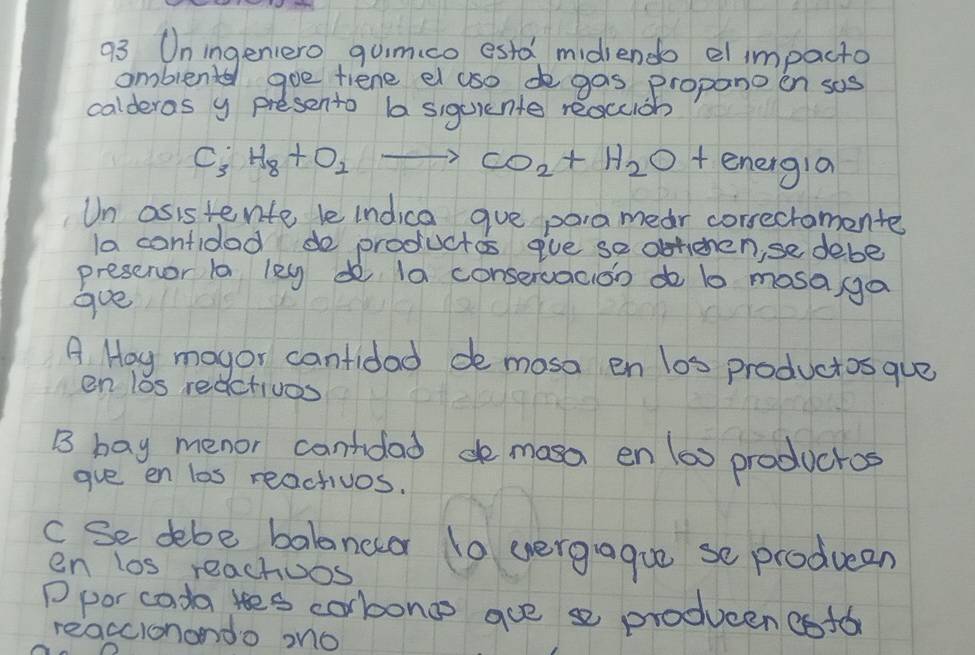 93 Un ingeniero químico está midiendo el impacto
ambiental que tiene el uso de gas propano en sus
calderas y presento la siguiente reacción
C3 H8 + O2 → CO2 + H2O + energia
Un asistente le indica que para medir correctamente
la cantidad de productos que se obtienen, se debe
presenor la ley de la conservación de la masa, ya
que
A Hay mayor cantidad de masa en los productos que
en los reactivos
B hay menor cantidad de masa en los productos
que en los reactivos.
C Se debe balancear la energia que se producen
en los reactivos
D por cada tres carbonos que se producen está
reaccionando uno